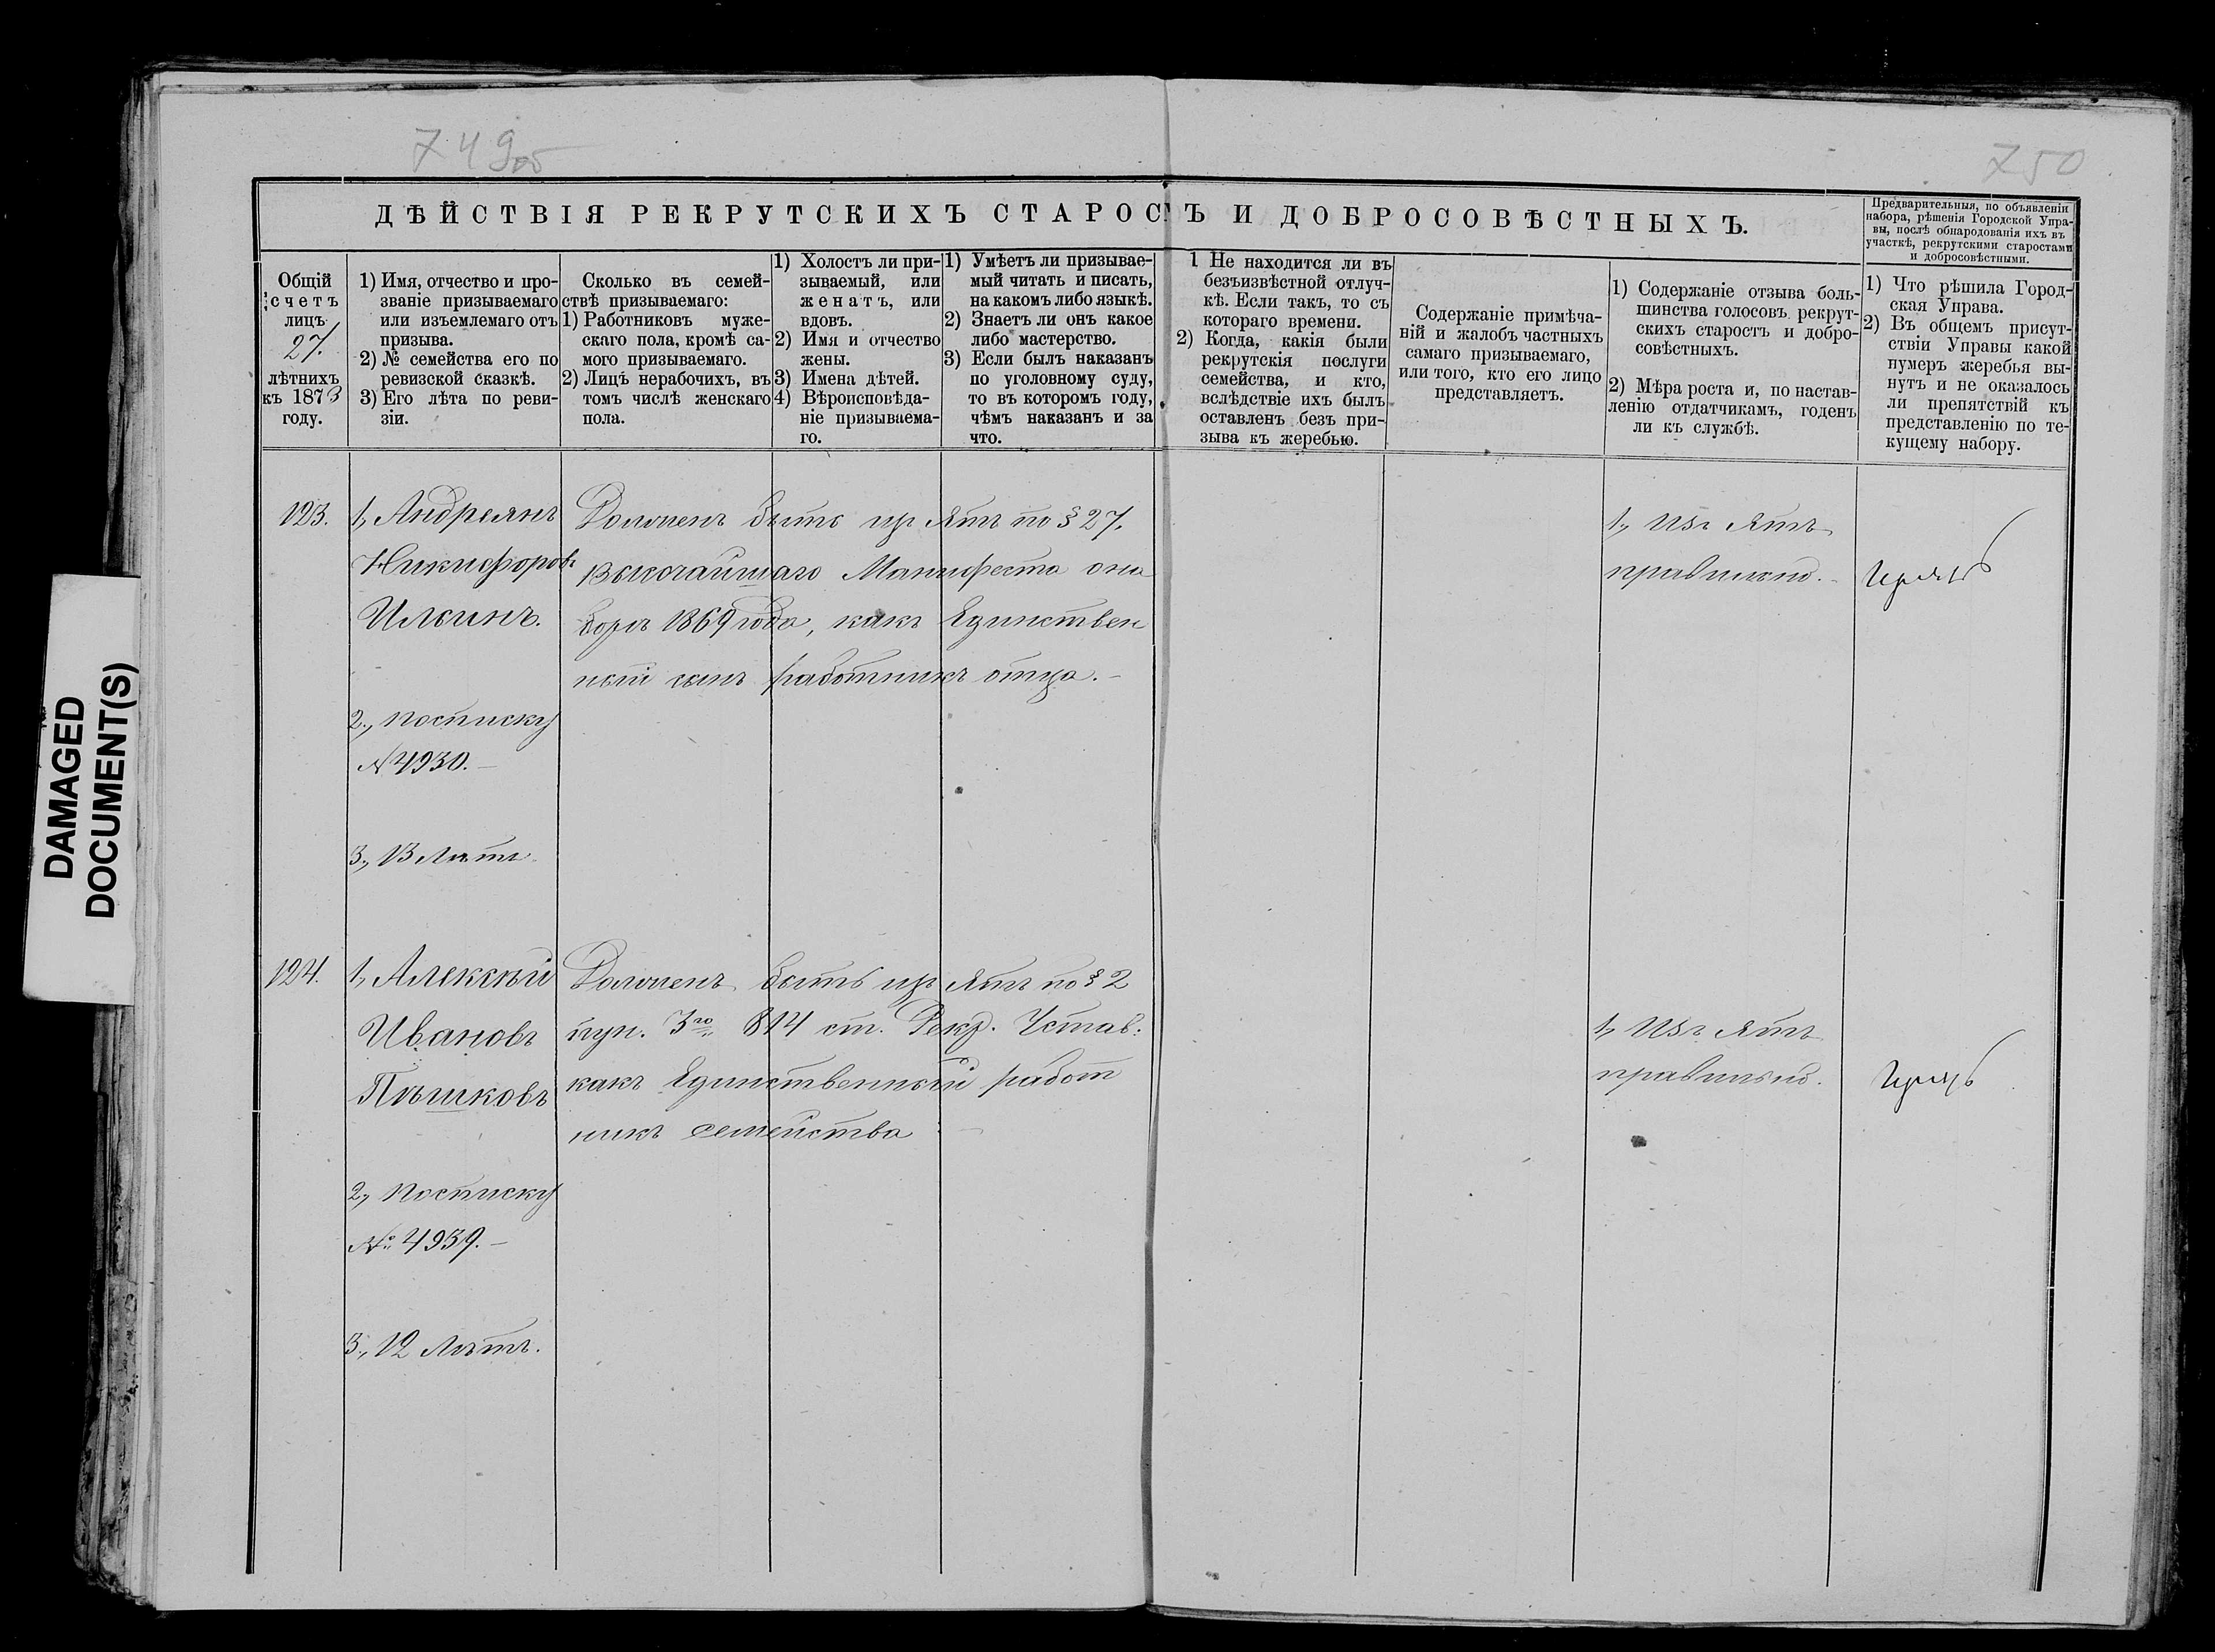 749об
750
ДѢЙСТВІЯ РЕКРУТСКИХЪ СТАРОСТЪ И ДОБРОСОВѢСТНЫХЪ.
Предварительныя, по объявленіи
набора, рѣшенія Городской Упра-
вы, послѣ обнародованія ихъ въ
участкѣ, рекрутскими старостами
и добросовѣстными.
Общій
счетъ
лицъ
27.
лѣтнихъ
къ 1873
году.
1) Имя, отчество и про-
званіе призываемаго
или изъемлемаго отъ
призыва.
2) № семейства его по
ревизской сказкѣ.
3) Его лѣта по реви-
зіи.
Сколько въ семей-
ствѣ призываемаго:
1) Работниковъ муже-
скаго пола, кромѣ са-
мого призываемаго.
2) Лицъ нерабочихъ, въ
томъ числѣ женскаго
пола.
1) Холостъ ли при-
зываемый, или
женатъ, или
вдовъ.
2) Имя и отчество
жены.
3) Имена дѣтей.
4) Вѣроисповѣда-
ніе призываема-
го.
1) Умѣетъ ли призывае-
мый читать и писать,
на какомъ либо языкѣ.
2) Знаетъ ли онъ какое
либо мастерство.
3) Если былъ наказанъ
по уголовному суду,
то въ которомъ году,
чѣмъ наказанъ и за
что.
1 Не находится ли въ
безъизвѣстной отлуч-
кѣ. Если такъ, то съ
котораго времени.
2) Когда, какія были
рекрутскія послуги
семейства, и кто,
вслѣдствіе ихъ былъ
оставленъ безъ при-
зыва къ жеребью.
Содержаніе примѣча-
ній и жалобъ частныхъ
самаго призываемаго,
или того, кто его лицо
представляетъ.
1) Содержаніе отзыва боль-
шинства голосовъ рекрут-
скихъ старостъ и добро-
совѣстныхъ.
2) Мѣра роста и, по настав-
ленію отдатчикамъ, годенъ
ли къ службѣ.
1) Что рѣшила Город-
ская Управа.
2) Въ общемъ присут-
ствіи Управы какой
нумеръ жеребья вы-
нутъ и не оказалось
ли препятствій къ
представленію по те-
кущему набору.
123.
1, Андреянъ
Никифоровъ
Ильинъ.
2., По списку
№ 4930.
3., 13 Лѣтъ
Долженъ быть изъятъ по § 27.
Высочайшаго Манифеста о на
борѣ 1869 года, какъ Единствен
ный сынъ работникъ отца.
1., Изъятъ
правильно.
124.
1, Алексѣй
Ивановъ
Пѣшковъ
2., По списку
№ 4939.
3., 12 Лѣтъ.
Долженъ быть изъятъ по § 2
пун. 3го 814 ст. Рекр. Устав:
какъ Единственный работ
никъ семейства
1, Изъятъ
правильно.
DAMAGED
DOCUMENT(S)